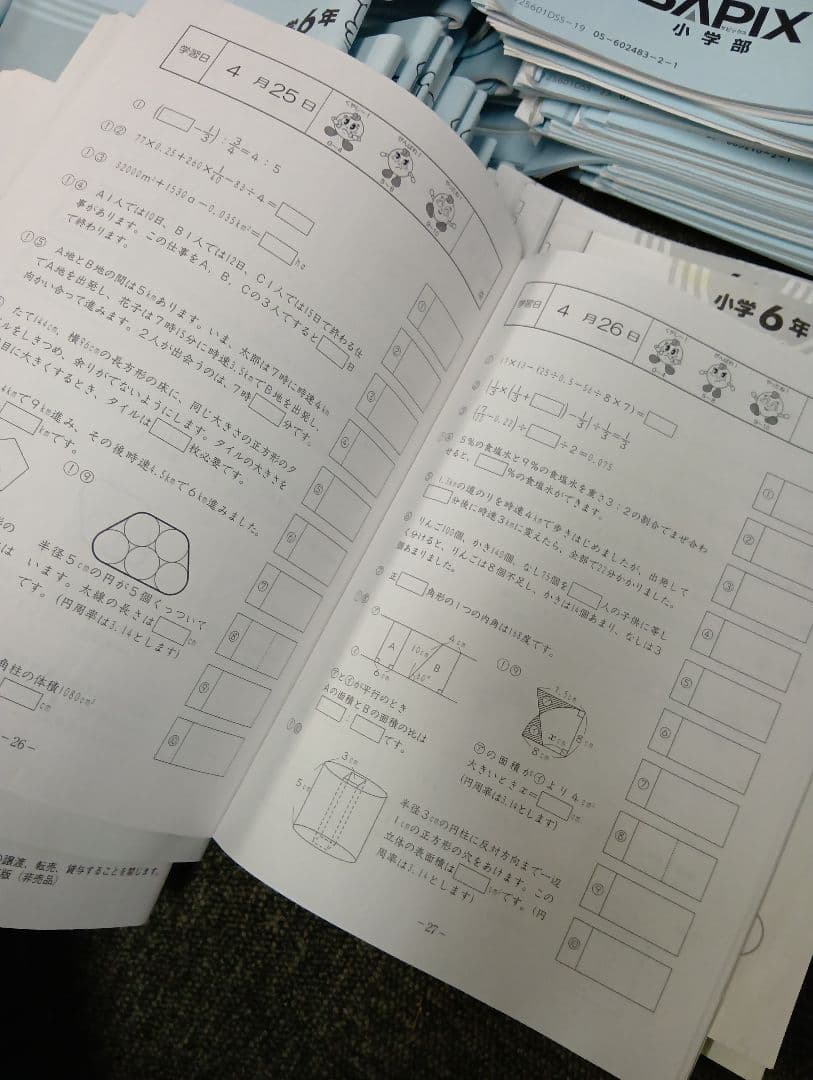 6年
25601DSS-19 05-602483-2-1
SAPIX
サピックス
小学部
学習日 4月25日
くやし〜! がんばれ! やったね!
0〜4 5〜8 9〜10
① (□−1/3):3/4=4:5
① ② 77×0.25+260×1/40−83÷4=□
① ③ 32000m²+1530a−0.035km²=□ha
① ④ A1人では10日、B1人では12日、C1人では15日で終わる仕
事があります。この仕事をA、B、Cの3人ですると□日
で終わります。
① ⑤ A地とB地の間は5kmあります。いま、太郎は7時に時速4km
でA地を出発し、花子は7時15分に時速3.5kmでB地を出発し、
向かい合って進みます。2人が出会うのは、7時□分です。
たて144cm、横96cmの長方形の床に、同じ大きさの正方形のタ
イルをしきつめ、余りがでないようにします。タイルの大きさを
に大きくするとき、タイルは□枚必要です。
4kmで9km進み、その後時速4.5kmで6km進みました。
□kmです。
① ⑨
半径5cmの円が5個くっついて
います。太線の長さは□cm
です。(円周率は3.14とします)
角柱の体積1080cm³
□cm
① ② ③ ④ ⑤ ⑥ ⑦ ⑧ ⑨ ⑩
−26−
譲渡、転売、貸与することを禁じます。
版(非売品)
小学6年
学習日 4月26日
くやし〜! がんばれ! やったね!
0〜4 5〜8 9〜10
④ 5%の食塩水と9%の食塩水を重さ3:2の割合でまぜ合わ
せると、□%の食塩水ができます。
⑤ 1.3kmの道のりを時速4kmで歩きはじめましたが、出発して
□分後に時速3kmに変えたら、全部で22分かかりました。
⑥ りんご100個、かき140個、なし75個を□人の子供に等し
く分けると、りんごは8個不足し、かきは14個あまり、なしは3
個あまりました。
⑦ 正□角形の1つの内角は168度です。
① ⑧
㋐ 4cm
A 10cm B
㋑ 6cm
㋐と㋑が平行のとき
Aの面積とBの面積の比は
□:□です。
① ⑨
8cm
xcm
8cm
㋐の面積が㋑より4cm²
大きいときx=□cm
(円周率は3.14とします)
① ⑩
3cm
5cm
半径3cmの円柱に反対方向まで一辺
1cmの正方形の穴をあけます。この
立体の表面積は□cm²です。(円
周率は3.14とします)
① ② ③ ④ ⑤ ⑥ ⑦ ⑧ ⑨ ⑩
−27−